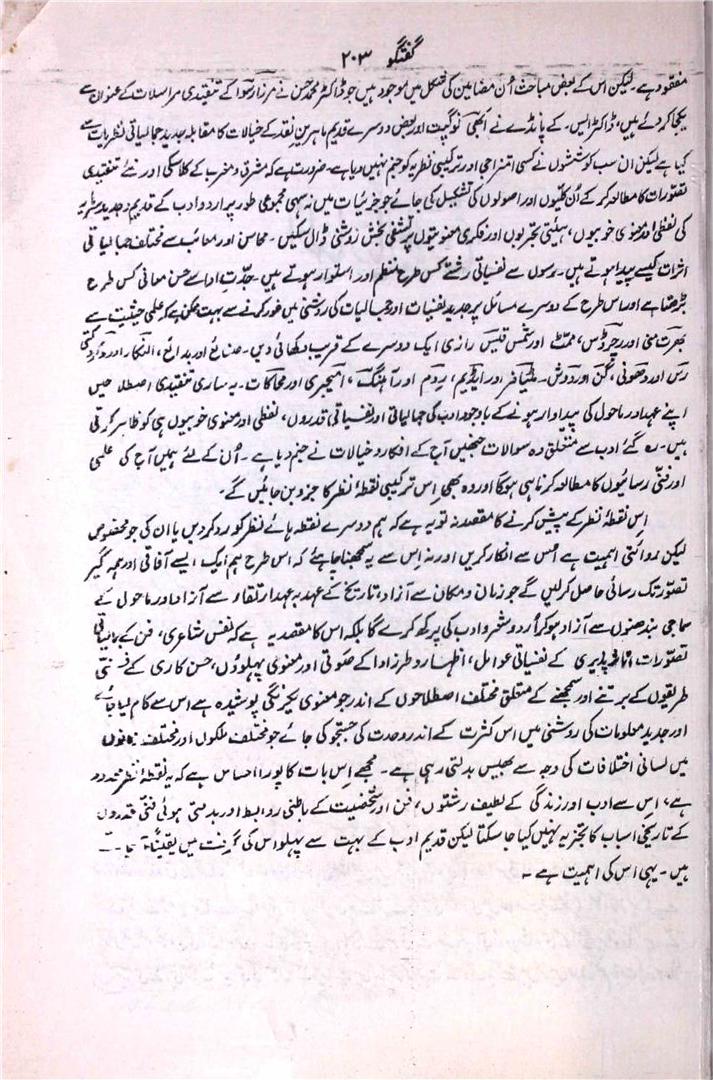 گفتگو ۲۰۳
مفقود ہے۔ لیکن اس کے بعض مباحث اُن مضامین کی شکل میں موجود ہیں جو ڈاکٹر محمد حسن نے مرزا رسوا کے تنقیدی مراسلات کے عنوان سے
یکجا کر دئے ہیں، ڈاکٹر ایس۔ کے پانڈے نے ابھی نو گپت اور بعض دوسرے قدیم ماہرینِ نقد کے خیالات کا مقابلہ جدید جمالیاتی نظریات سے
کیا ہے لیکن ان سب کوششوں نے کسی امتزاجی اور ترکیبی نظریہ کو جنم نہیں دیا ہے۔ ضرورت ہے کہ مشرق و مغرب کے کلاسکی اور نئے تنقیدی
تصورات کا مطالعہ کر کے اُن کلیوں اور اصولوں کی تشکیل کی جائے جو جزئیات میں نہ سہی مجموعی طور پر اردو ادب کے قدیم و جدید سرمایہ
کی لفظی اور معنوی خوبیوں، ہیئتی تجربوں اور فکری معنویتوں پر تشفی بخش روشنی ڈال سکیں۔ محاسن اور معائب سے مختلف جمالیاتی
اثرات کیسے پیدا ہوتے ہیں۔ رسوں سے نفسیاتی رشتے کس طرح منظم اور استوار ہوتے ہیں۔ جدّت ادا سے حسن معانی کس طرح
بڑھتا ہے اور اس طرح کے دوسرے مسائل پر جدید نفسیات اور جمالیات کی روشنی میں غور کرنے سے بہت ممکن ہے کہ علمی حیثیت سے
بھرت منی اور رچرڈس، ممٹ اور شمس قیس رازی ایک دوسرے کے قریب دکھائی دیں۔ صنائع اور بدائع، النکار اور
رس اور دھونی، گن اور دوش۔ میٹافر اور ایڈیم، ردم اور آہنگ، امیجری اور محاکات۔ یہ ساری تنقیدی اصطلاحیں
اپنے عہد اور ماحول کی پیداوار ہونے کے باوجود ادب کی جمالیاتی اور نفسیاتی قدروں، لفظی اور معنوی خوبیوں ہی کو ظاہر کرتی
ہیں۔ رہ گئے ادب سے متعلق وہ سوالات جنہیں آج کے افکار و خیالات نے جنم دیا ہے۔ اُن کے لئے ہمیں آج کی علمی
اور فنّی رسائیوں کا مطالعہ کرنا ہی ہوگا اور وہ بھی اِس ترکیبی نقطۂ نظر کا جزو بن جائیں گے۔
اِس نقطۂ نظر کے پیش کرنے کا مقصد نہ تو یہ ہے کہ ہم دوسرے نقطہ ہائے نظر کو رد کر دیں یا ان کی جو مخصوص
لیکن روائتی اہمیت ہے اُس سے انکار کریں اور نہ اِس سے یہ سمجھنا چاہئے کہ اس طرح ہم ایک ایسے آفاقی اور ہمہ گیر
تصوّر تک رسائی حاصل کر لیں گے جو زمان و مکان سے آزاد، تاریخ کے عہد بہ عہد ارتقاء سے آزاد اور ماحول کے
سماجی بندھنوں سے آزاد ہو کر اُردو شعر و ادب کی پرکھ کرے گا بلکہ اس کا مقصد یہ ہے کہ نفس شاعری، فن کے جمالیاتی
تصوّرات، اثر پذیری کے نفسیاتی عوامل، اظہار و طرز ادا کے صوتی اور معنوی پہلوؤں، حسن کاری کے فنّی
طریقوں کے برتنے اور سمجھنے کے متعلق مختلف اصطلاحوں کے اندر جو معنوی یکرنگی پوشیدہ ہے اس سے کام لیا جائے
اور جدید معلومات کی روشنی میں اس کثرت کے اندر وحدت کی جستجو کی جائے جو مختلف ملکوں اور مختلف زبانوں
میں لسانی اختلافات کی وجہ سے بھیس بدلتی رہی ہے۔ مجھے اِس بات کا پورا احساس ہے کہ یہ نقطۂ نظر محدود
ہے، اِس سے ادب اور زندگی کے لطیف رشتوں، فن اور شخصیت کے باطنی روابط اور بدلتی ہوئی فنّی قدروں
کے تاریخی اسباب کا تجزیہ نہیں کیا جا سکتا لیکن قدیم ادب کے بہت سے پہلو اس کی گرفت میں یقیناً آ جاتے
ہیں۔ یہی اس کی اہمیت ہے۔